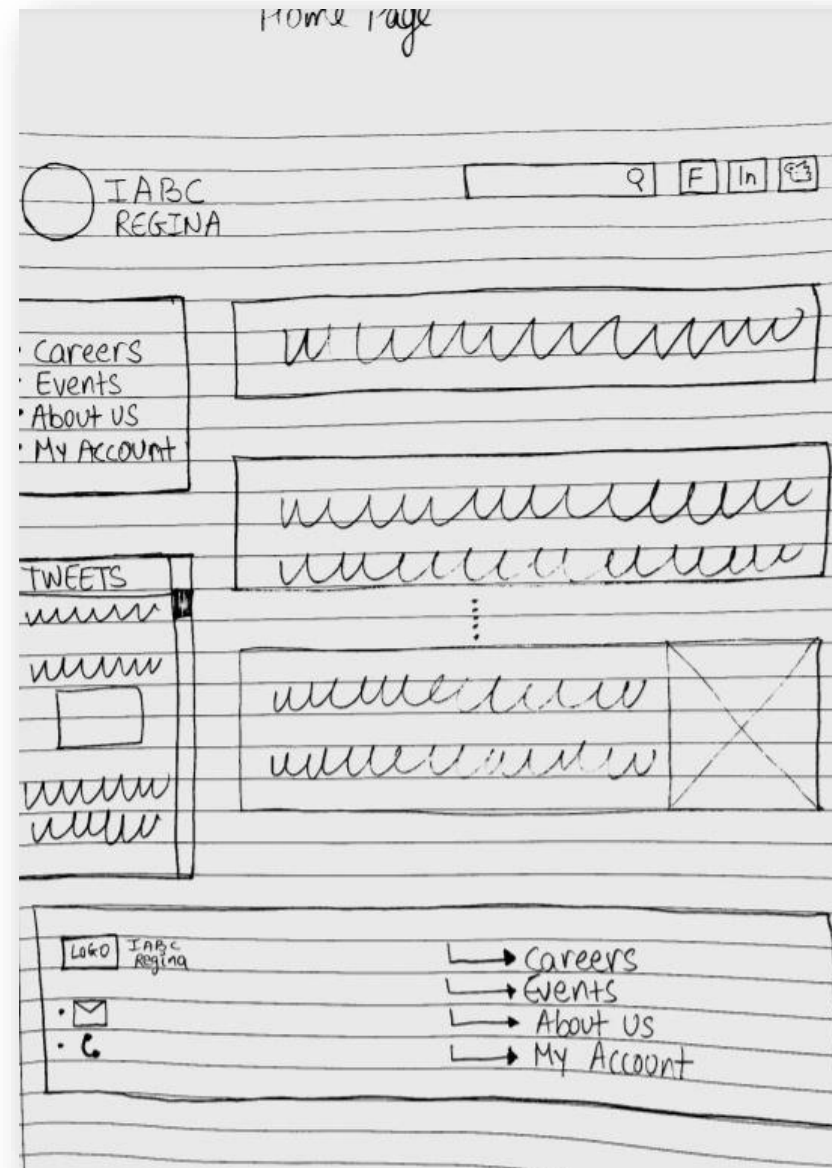 Home Page
IABC
REGINA
F In
Careers
Events
About us
My Account
TWEETS
LOGO IABC
Regina
Careers
Events
About us
My Account